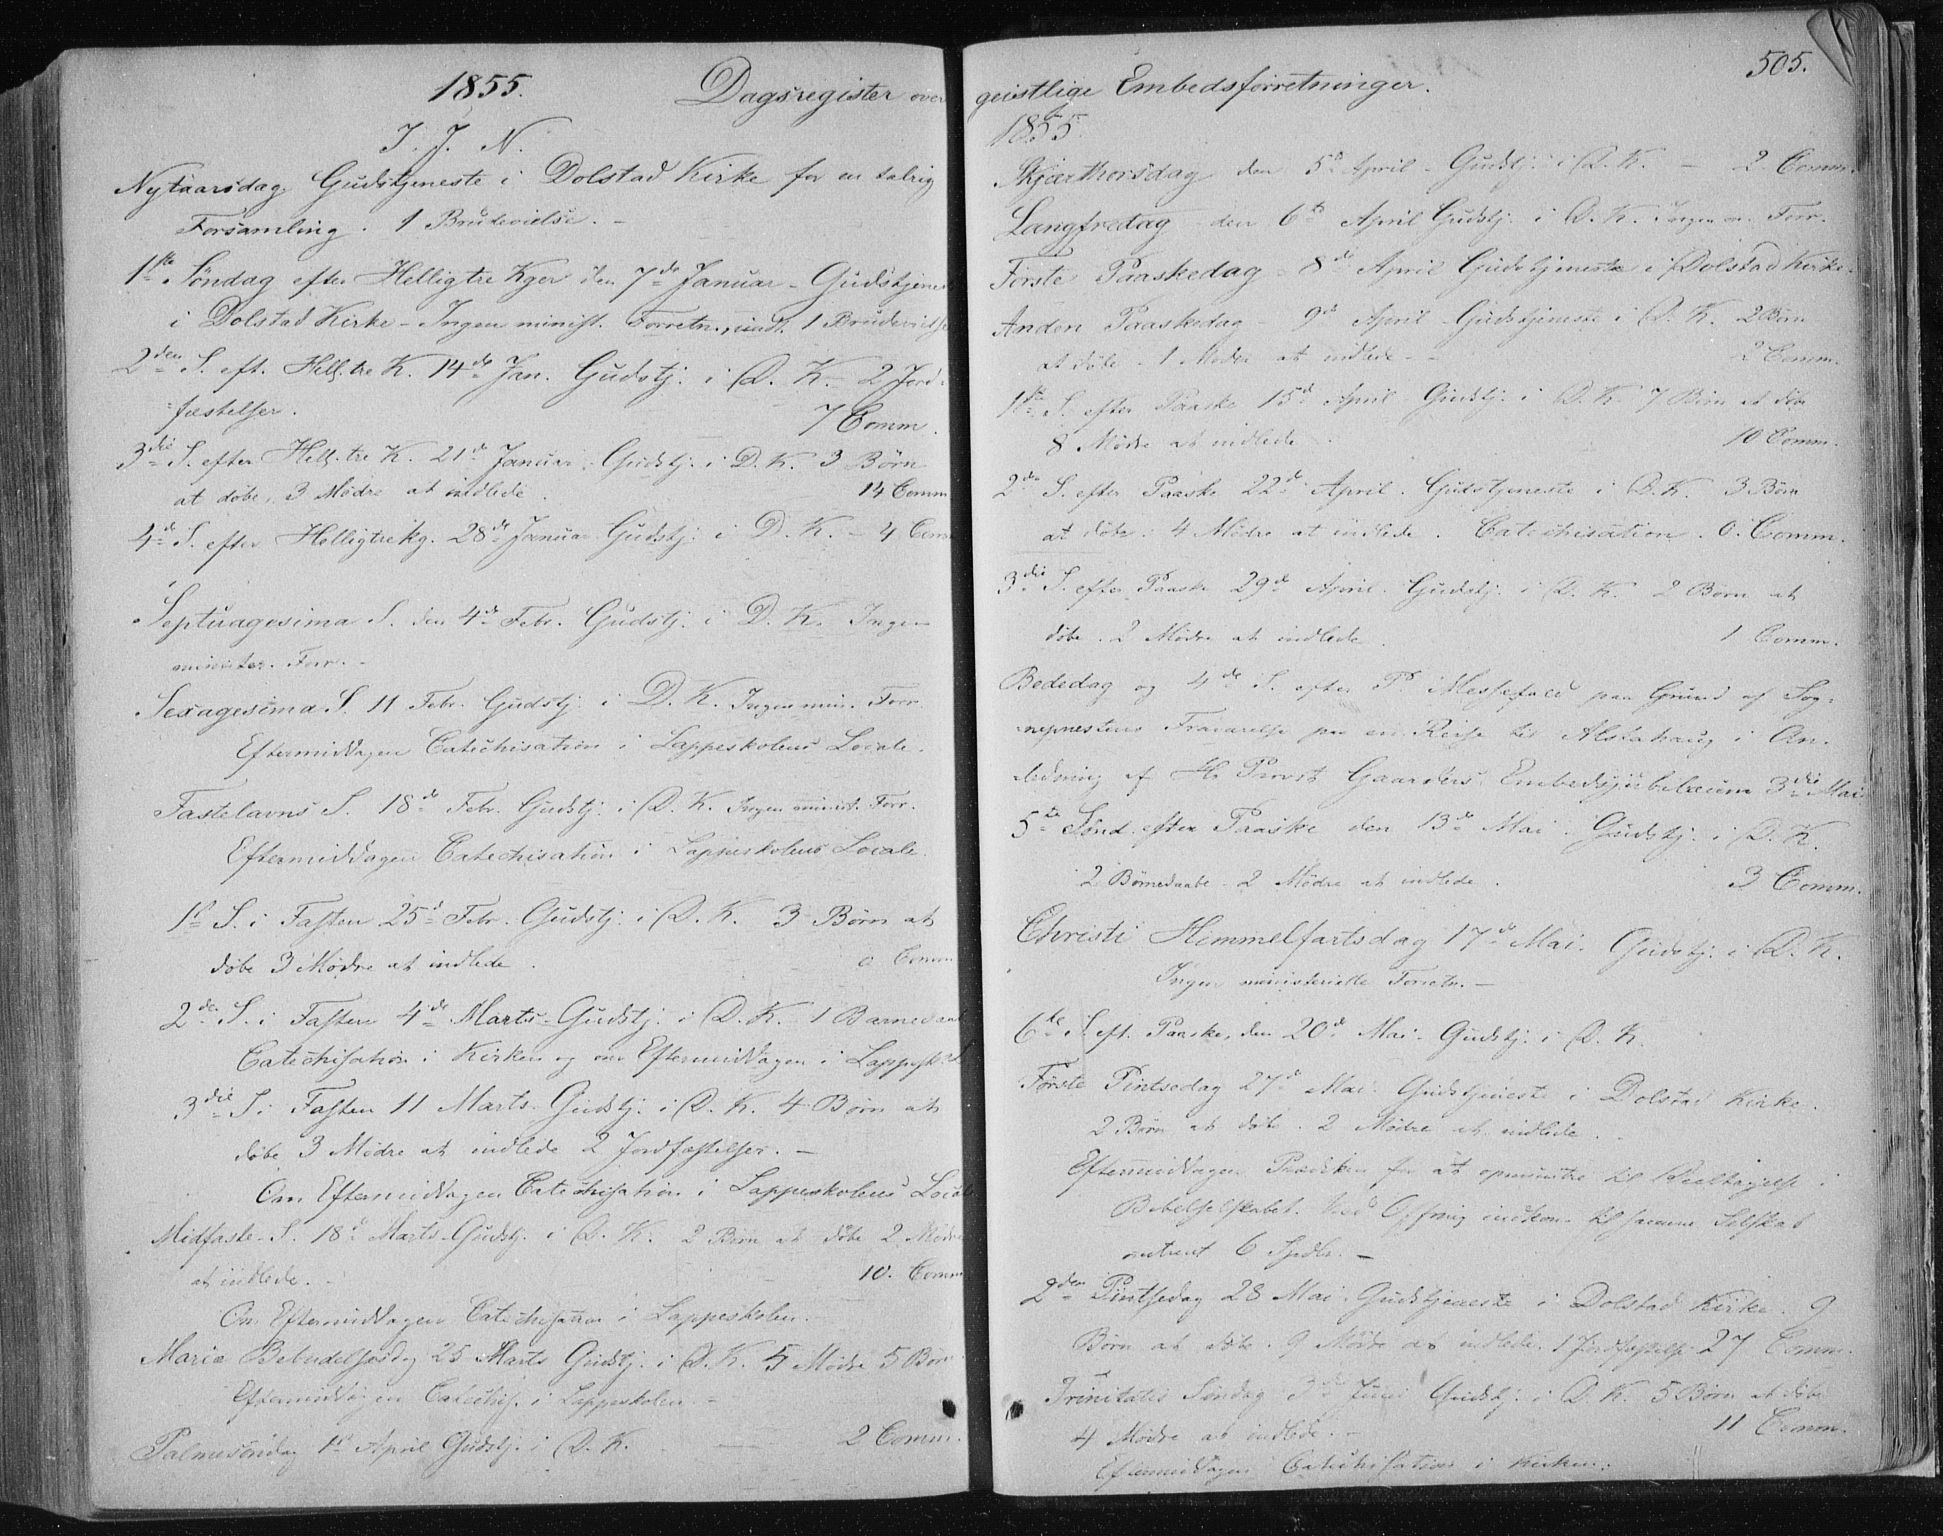 1855. Dagsregister over
I. J. N.
Nytaarsdag Gudstjeneste i Dolstad Kirke for en talrig
Forsamling. 1 Brudevielse. -
1ste Søndag efter Helligtre Kger den 7de Januar - Gudstjeneste
i Dolstad Kirke - Ingen minist. Forretn., undt. 1 Brudevielse
2den S. eft. Hell. tre K. 14de Jan. Gudstj. i D. K. - 2 Jord-
fæstelser. 7 Comm.
3die S. efter Hell. tre K. 21de Januar. Gudstj. i D. K. 3 Børn
at døbe. 3 Mødre at indlede. 14 Comm
4de S. efter Helligtrekg. 28de Januar Gudstj. i D. K. - 4 Comm
Septuagesima S. den 4de Febr. Gudstj. i D. K. Ingen
minister. Forr. -
Sexagesima S. 11 Febr. Gudstj. i D. K. Ingen min. Forr.
Eftermiddagen Catechisation i Lappeskolens Locale.
Fastelavns S. 18de Febr. Gudstj. i D. K. Ingen minist. Forr.
Eftermiddagen Catechisation i Lappeskolens Locale.
1ste S. i Fasten 25de Febr. Gudstj. i D. K. 3 Børn at
døbe 3 Mødre at indlede. 0 Comm
2den S. i Fasten 4de Marts - Gudstj. i D. K. 1 Barnedaab
Catechisation i Kirken og om Eftermiddagen i Lappesk.
3die S. i Fasten 11 Marts. Gudstj. i D. K. 4 Børn at
døbe 3 Mødre at indlede 2 Jordfæstelser. -
Om Eftermiddagen Catechisation i Lappeskolens Locale
Midfaste - S. 18de Marts - Gudstj. i D. K. 2 Børn at døbe 2 Mødre
at indlede. - 10. Comm
Om Eftermiddagen Catechisation i Lappeskolen.
Mariæ Bebudelsesdg 25 Marts Gudstj. i D. K. 5 Mødre 5 Børn
Eftermiddagen Catechis. i Lappeskolen -
Palmesøndag 1ste April Gudstj. i D. K. 2 Comm.
505.
geistlige Embedsforretninger.
1855.
Skjærthorsdag den 5te April - Gudstj. i D. K. - 2 Comm.
Langfredag - den 6te April Gudstj. i D. K. Ingen m. Forr.
Første Paaskedag - 8de April Gudstjeneste i Dolstad Kirke.
Anden Paaskedag 9de April Gudstjeneste i D. K. 2 Børn
at døbe - 1 Moder at indlede - 2 Comm.
1ste S. efter Paaske 15de April - Gudstj. i D. K. 7 Børn at døbe
8 Mødre at indlede. 10 Comm.
2den S. efter Paaske 22de April. Gudstjeneste i D. K. 3 Børn
at døbe. 4 Mødre at indlede. Catechisation. 0. Comm.
3die S. efter Paaske 29de April. Gudstj. i D. K. 2 Børn at
døbe. 2 Mødre at indlede. 1 Comm.
Bededag og 4de S. efter P. Messefald paa Grund af Sog-
nepræstens Fraværelse paa en Reise til Alstahaug i An-
ledning af Hr Provst Gaarders Embedsjubelæum 3die Mai
5te Sønd. efter Paaske den 13de Mai. Gudstj. i D. K.
2 Børnedaabe - 2 Mødre at indlede. 3 Comm.
Christi Himmelfartsdag 17de Mai. Gudstj. i D. K.
Ingen ministerielle Forretn. -
6te S. eft. Paaske, den 20de Mai - Gudstj. i D. K.
Første Pintsedag 27de Mai. Gudstjeneste i Dolstad Kirke.
2 Børn at døbe. 2 Mødre at indlede.
Eftermiddagen Prædiken for at opmuntre til Deeltagelse i
Bibelselskabet. Ved Offring indkom til samme Selskab
omtrent 6 Spdlr. -
2den Pintsedag 28 Mai. Gudstjeneste i Dolstad Kirke. 9
Børn at døbe. 9 Mødre at indlede. 1 Jordfæstelse 27 Comm.
Trinitatis Søndag 3de Juni Gudstj. i D. K. 5 Børn at døbe
4 Mødre at indlede. - 11 Comm.
Eftermiddagen Catechisation i Kirken.